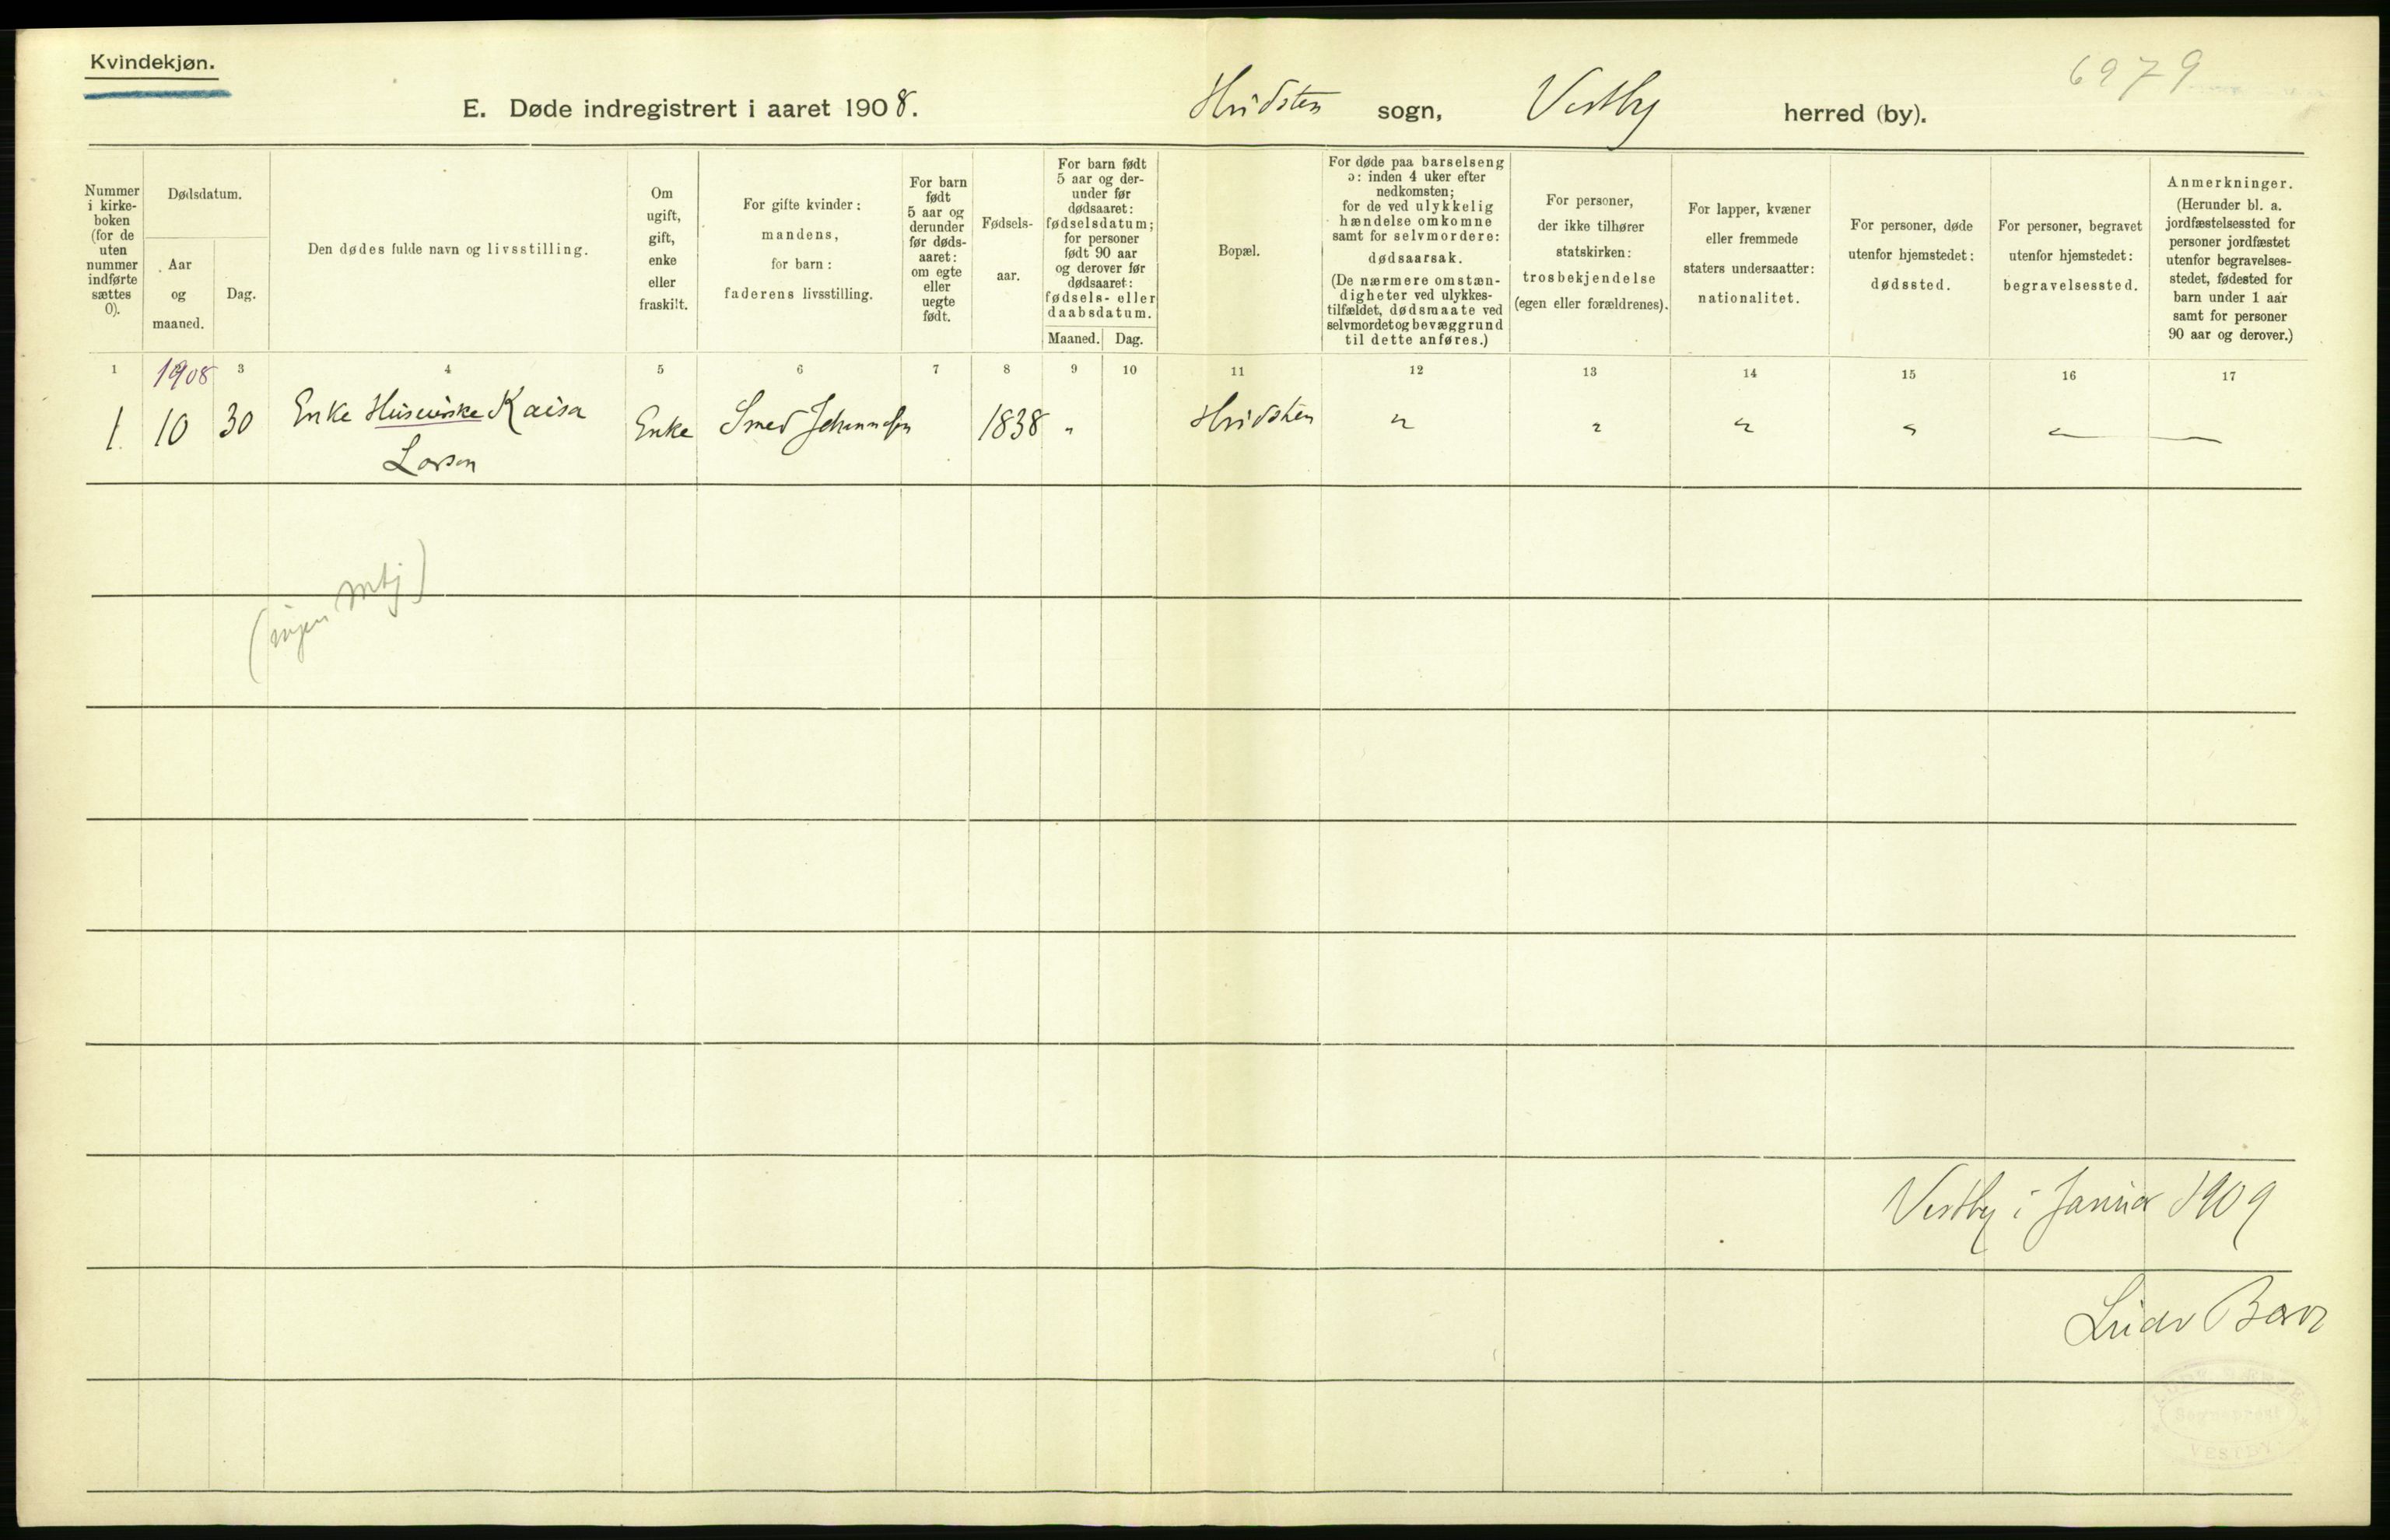 Kvindekjøn.
6979
E. Døde indregistrert i aaret 1908. Hvidsten sogn, Vestby herred (by).
Nummer
i kirke-
boken
(for de
uten
nummer
indførte
sættes
0).
Dødsdatum.
Aar
og
maaned.
Dag.
Den dødes fulde navn og livsstilling.
Om
ugift,
gift,
enke
eller
fraskilt.
For gifte kvinder:
mandens,
for barn:
faderens livsstilling.
For barn
født
5 aar og
derunder
før døds-
aaret:
om egte
eller
uegte
født.
Fødsels-
aar.
For barn født
5 aar og der-
under før
dødsaaret:
fødselsdatum;
for personer
født 90 aar
og derover før
dødsaaret:
fødsels- eller
daabsdatum.
Maaned.
Dag.
Bopæl.
For døde paa barselseng
ɔ: inden 4 uker efter
nedkomsten;
for de ved ulykkelig
hændelse omkomne
samt for selvmordere:
dødsaarsak.
(De nærmere omstæn-
digheter ved ulykkes-
tilfældet, dødsmaate ved
selvmordet og bevæggrund
til dette anføres.)
For personer,
der ikke tilhører
statskirken:
trosbekjendelse
(egen eller forældrenes).
For lapper, kvæner
eller fremmede
staters undersaatter:
nationalitet.
For personer, døde
utenfor hjemstedet:
dødssted.
For personer, begravet
utenfor hjemstedet:
begravelsessted.
Anmerkninger.
(Herunder bl. a.
jordfæstelsessted for
personer jordfæstet
utenfor begravelses-
stedet, fødested for
barn under 1 aar
samt for personer
90 aar og derover.)
1 1908 3 4 5 6 7 8 9 10 11 12 13 14 15 16 17
1. 10 30 Enke Kaisa Enke Smed 1838 " Hvidsten " " " " "
Larsen
(ingen mtj)
Vestby i Januar 1909
Ludv Bærø
Sogneprest
VESTBY